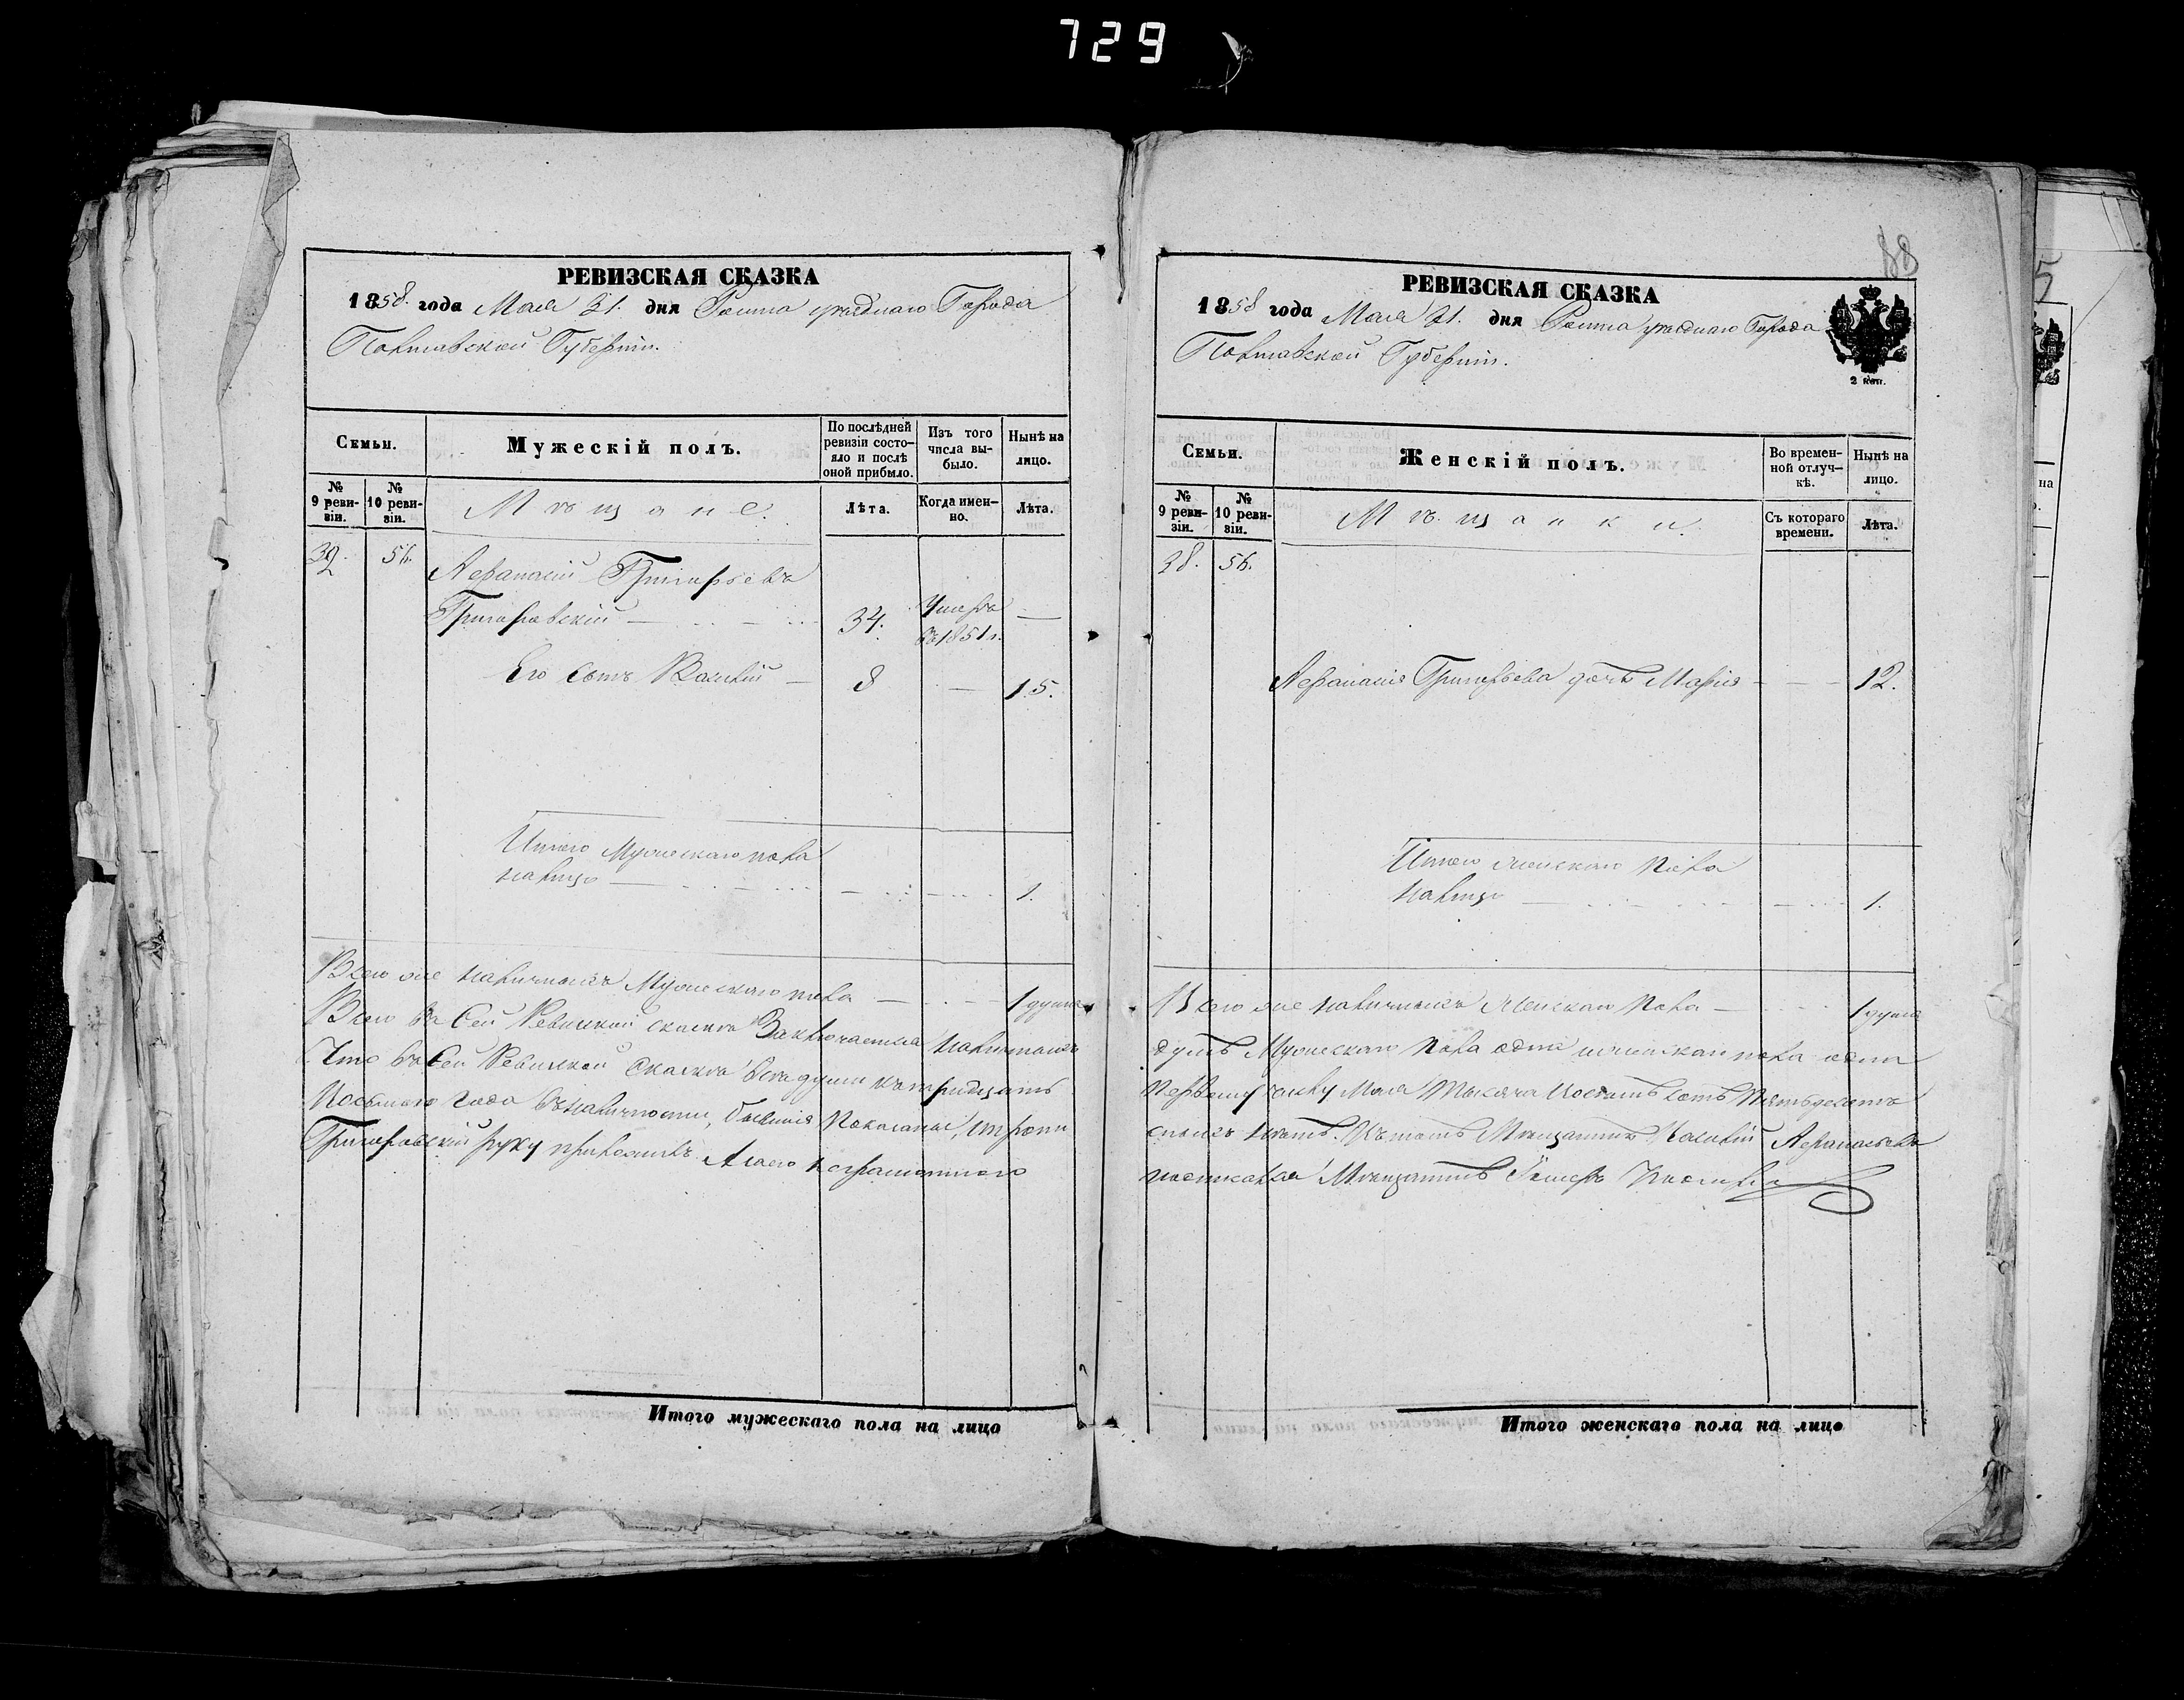 729
РЕВИЗСКАЯ СКАЗКА
1858 года Мая 31. дня Ромна уезднаго Города
Полтавской Губернии.
Семьи.
Мужескій полъ.
По послѣдней ревизіи состояло и послѣ оной прибыло.
Изъ того числа выбыло.
Нынѣ на лицо.
№ 9 ревизіи.
№ 10 ревизіи.
Мѣщане.
Лѣта.
Когда именно.
Лѣта.
56.
Афанасій Григорьевъ
Григоровскій 34. Умеръ въ 1851 г. —
Его сынъ Василій — 8 — 15.
Итого Мужескаго пола
налицо 1.
Всего же наличныхъ Мужескаго пола — 1 душа
Всего въ Сей Ревизской сказкѣ Заключается наличныхъ
Что въ сей Ревизской Сказкѣ всѣ души къ тридцать
Восьмаго Года въ наличности, бывшія показаны, и
Григоровскій руку приложилъ А за его неграмотнаго
Итого мужескаго пола на лицо
88
РЕВИЗСКАЯ СКАЗКА
1858 года Мая 31. дня Ромна уезднаго Города
Полтавской Губернии.
2 коп.
Семьи.
Женскій полъ.
Во временной отлучкѣ.
Нынѣ на лицо.
№ 9 ревизіи.
№ 10 ревизіи.
Мѣщанки.
Съ котораго времени.
Лѣта.
38. 56.
Афанасія Григорьева дочь Марія — 12.
Итого женскаго Пола
налицо 1.
Всего же наличныхъ Женскаго Пола — 1 душа
душъ Мужескаго Пола одна и женскаго пола одна
Первому числу Мая Тысяча Восемь сотъ Пятьдесятъ
нѣтъ. Въ томъ Мѣщанинъ Василій Афанасьевъ
Мѣщанинъ
Итого женскаго пола на лицо